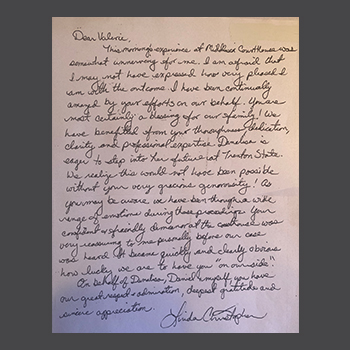 Dear Valerie,
This morning's experience at Middlesex Courthouse was
somewhat unnerving for me. I am afraid that
I may not have expressed how very pleased I
am with the outcome. I have been continually
amazed by your efforts on our behalf. You are
most certainly a blessing for our family! We
have benefited from your thoroughness, dedication,
clarity and professional expertise. Denelsa is
eager to step into her future at Trenton State.
We realize this would not have been possible
without your very gracious generosity! As
you may be aware we have been through a wide
range of emotions during these proceedings. Your
confident & friendly demeanor at the courthouse was
very reassuring to me personally before our case
was heard. It became quickly and clearly obvious
how lucky we are to have you "on our side".
On behalf of Denelsa, Daniel & myself you have
our great respect & admiration, deepest gratitude and
sincere appreciation.
Linda Christopher